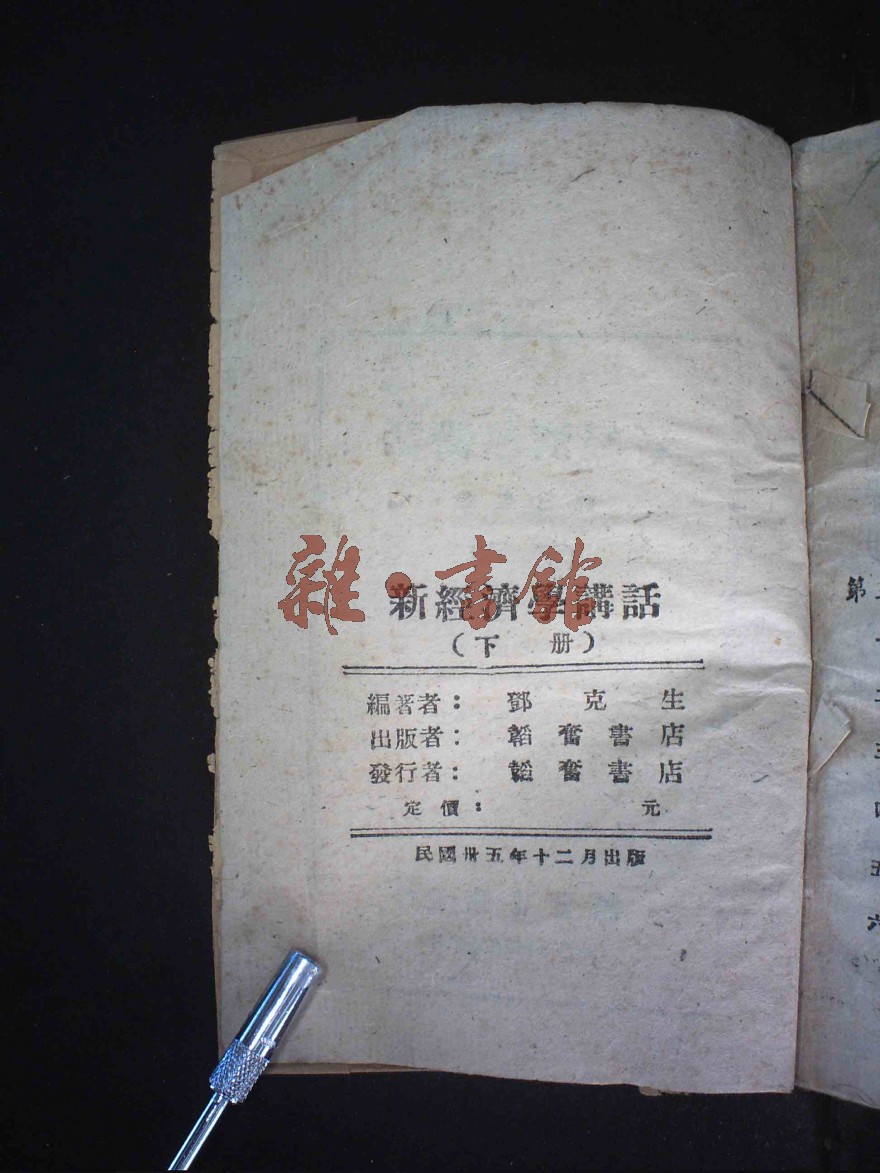 雜·書館
新經濟學講話
（下 册）
編著者： 鄧 克 生
出版者： 韜 奮 書 店
發行者： 韜 奮 書 店
定價： 元
民國卅五年十二月出版
第
二
三
五
六